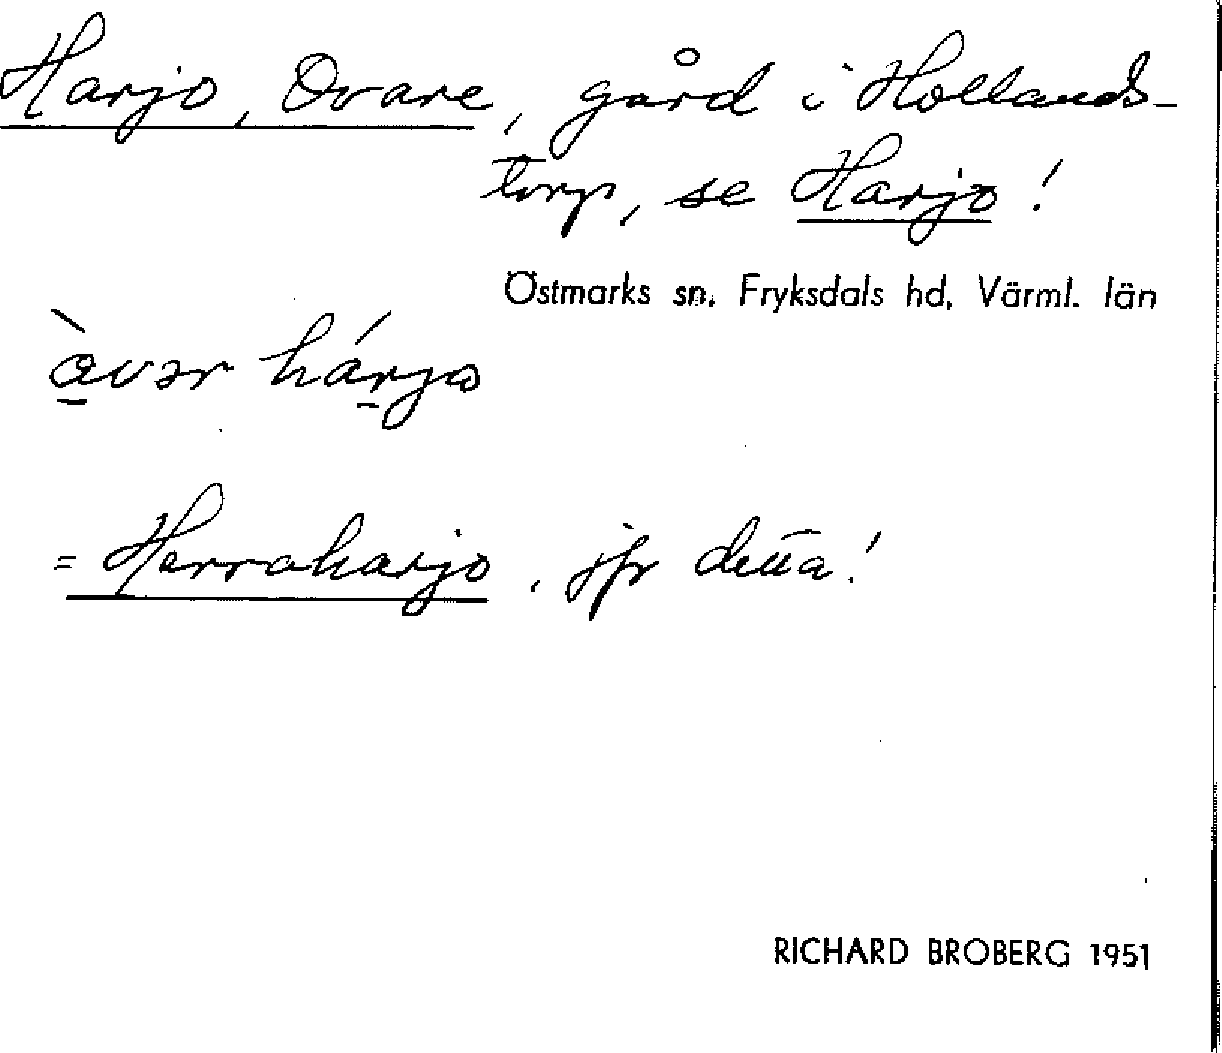 Harjo, Ovare, gård i Hollands-
torp, se Harjo!
Östmarks sn. Fryksdals hd, Värml. län
òvər hárjo
= Herraharjo, jfr detta!
RICHARD BROBERG 1951